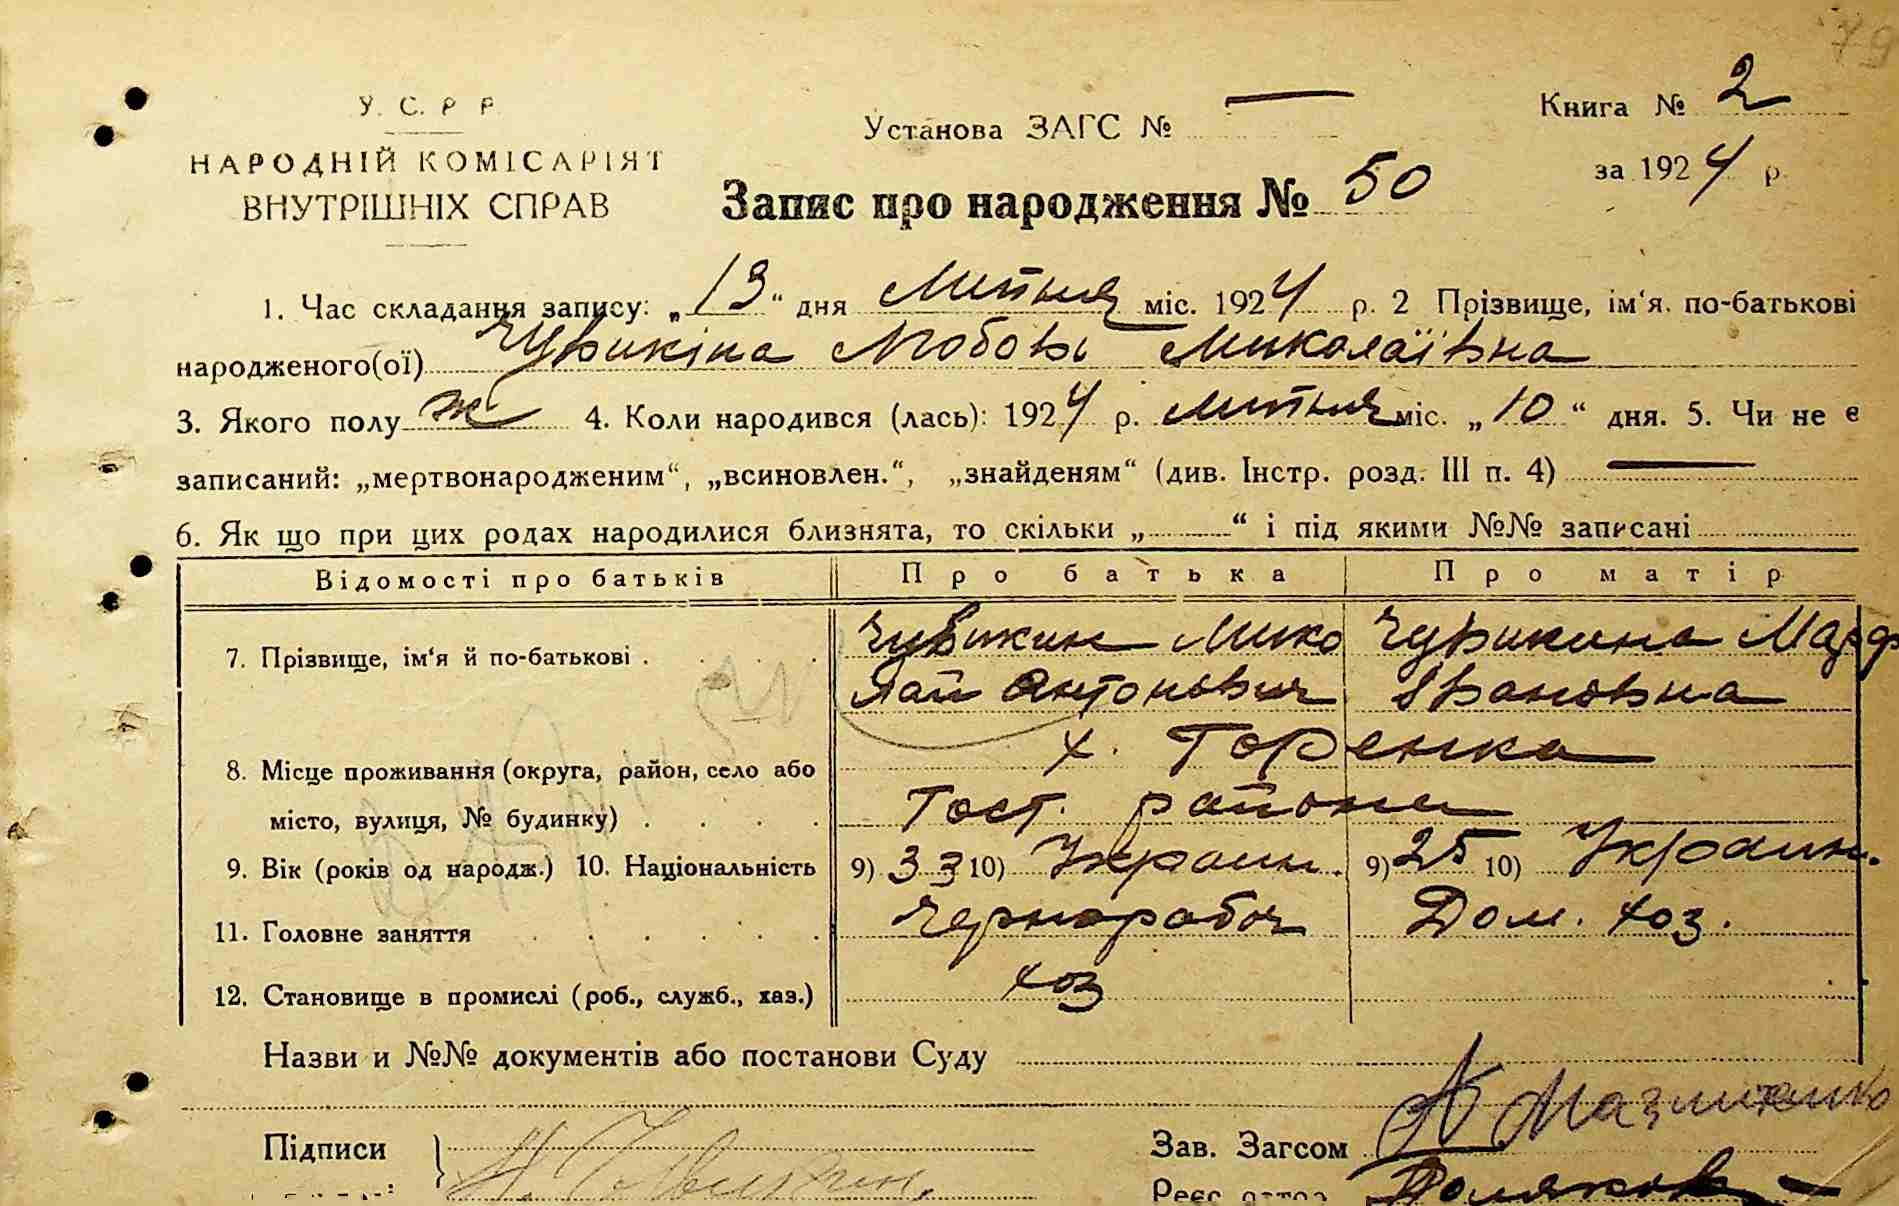 79
У. С. Р Р.
НАРОДНІЙ КОМІСАРІЯТ
ВНУТРІШНІХ СПРАВ
Установа ЗАГС № —
Книга № 2
за 1924 р.
Запис про народження № 50
1. Час складання запису: „13“ дня Липня міс. 1924 р. 2 Прізвище, ім‘я. по-батькові
народженого(ої) Чурикіна Любовь Миколаївна
3. Якого полу ж 4. Коли народився (лась): 1924 р. липня міс. „10“ дня. 5. Чи не є
записаний: „мертвонародженим“, „всиновлен.“, „знайденям“ (див. Інстр. розд. III п. 4) —
6. Як що при цих родах народилися близнята, то скільки „ “ і під якими №№ записані
Відомості про батьків Про батька Про матір
7. Прізвище, ім‘я й по-батькові . Чурикин Мико Чурикина Марф
лай Антонович Ивановна
8. Місце проживання (округа, район, село або х. Горенка
місто, вулиця, № будинку) Гост. района
9. Вік (років од народж.) 10. Національність 9) 33 10) Украин. 9) 25 10) Украин.
11. Головне заняття Чернорабоч Дом. хоз.
12. Становище в промислі (роб., служб., хаз.) хоз
Назви и №№ документів або постанови Суду
Підписи
Зав. Загсом
Поляков